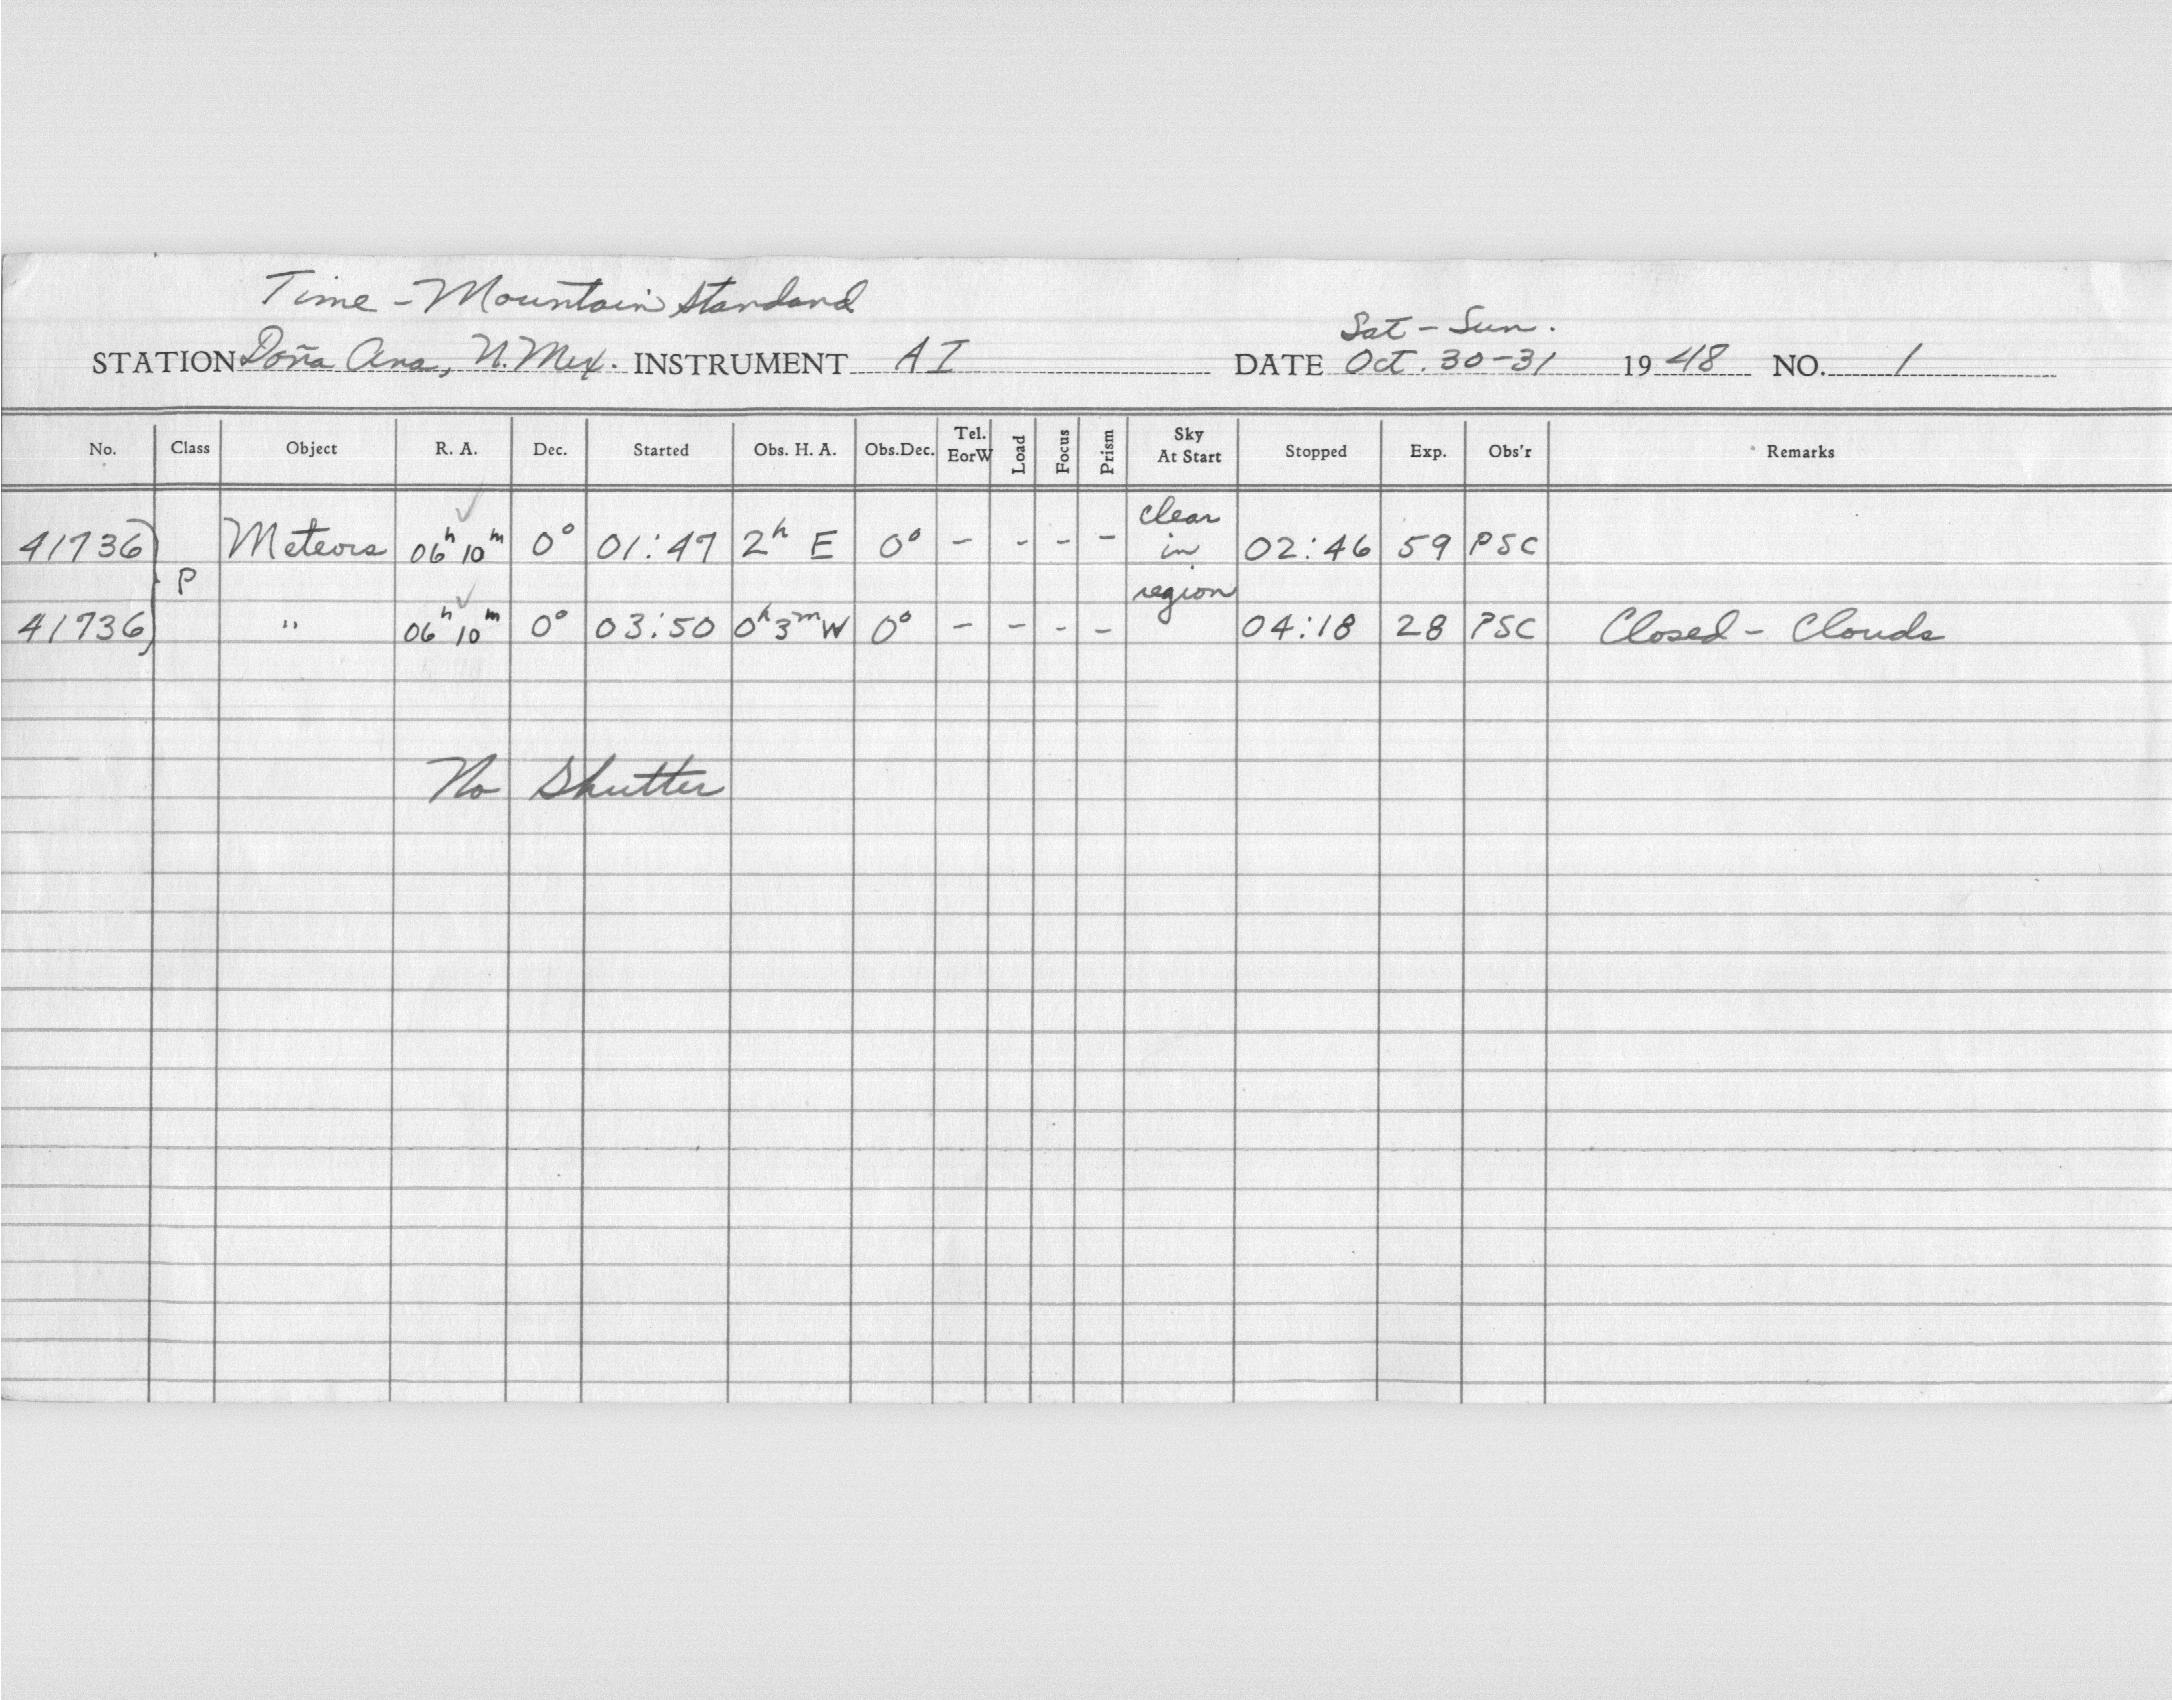 Time - Mountain Standard
Sat - Sun.
STATION Doña Ana, N. Mex. INSTRUMENT AI DATE Oct. 30-31 1948 NO. 1
No. Class Object R. A. Dec. Started Obs. H. A. Obs.Dec. Tel. EorW Load Focus Prism Sky At Start Stopped Exp. Obs'r Remarks
41736 Meteors 06h 10m 0° 01:47 2h E 0° - - - - clear in region 02:46 59 PSC
P
41736 " 06h 10m 0° 03:50 0h 3m W 0° - - - - 04:18 28 PSC Closed - Clouds
No Shutter